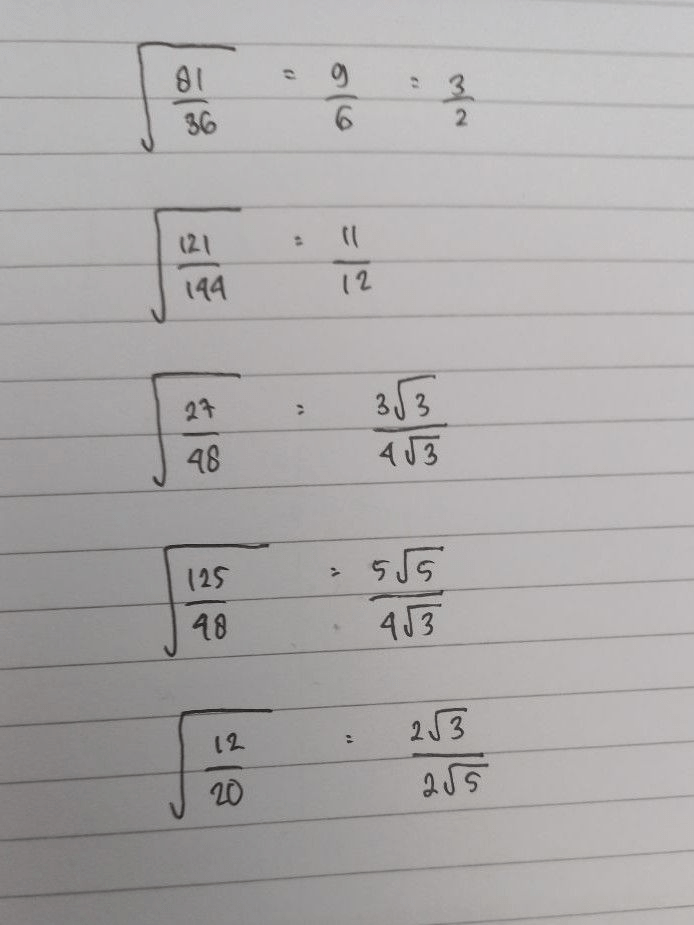 √(81/36) = 9/6 = 3/2
√(121/144) = 11/12
√(27/48) = 3√3/4√3
√(125/48) = 5√5/4√3
√(12/20) = 2√3/2√5